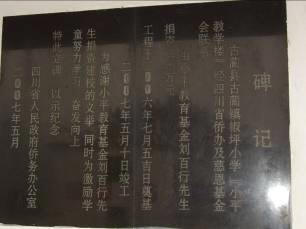 碑记
古蔺县古蔺镇椒坪小学“小平
教学楼”经四川省侨办及慈恩基金
会联系
小平教育基金刘百行先生
捐资 万元
工程于二00六年七月五日奠基
二00七年五月十日竣工
为感谢小平教育基金刘百行先
生捐资建校的义举 同时为激励学
童努力学习 奋发向上
特此立碑 以示纪念
四川省人民政府侨务办公室
二00七年五月